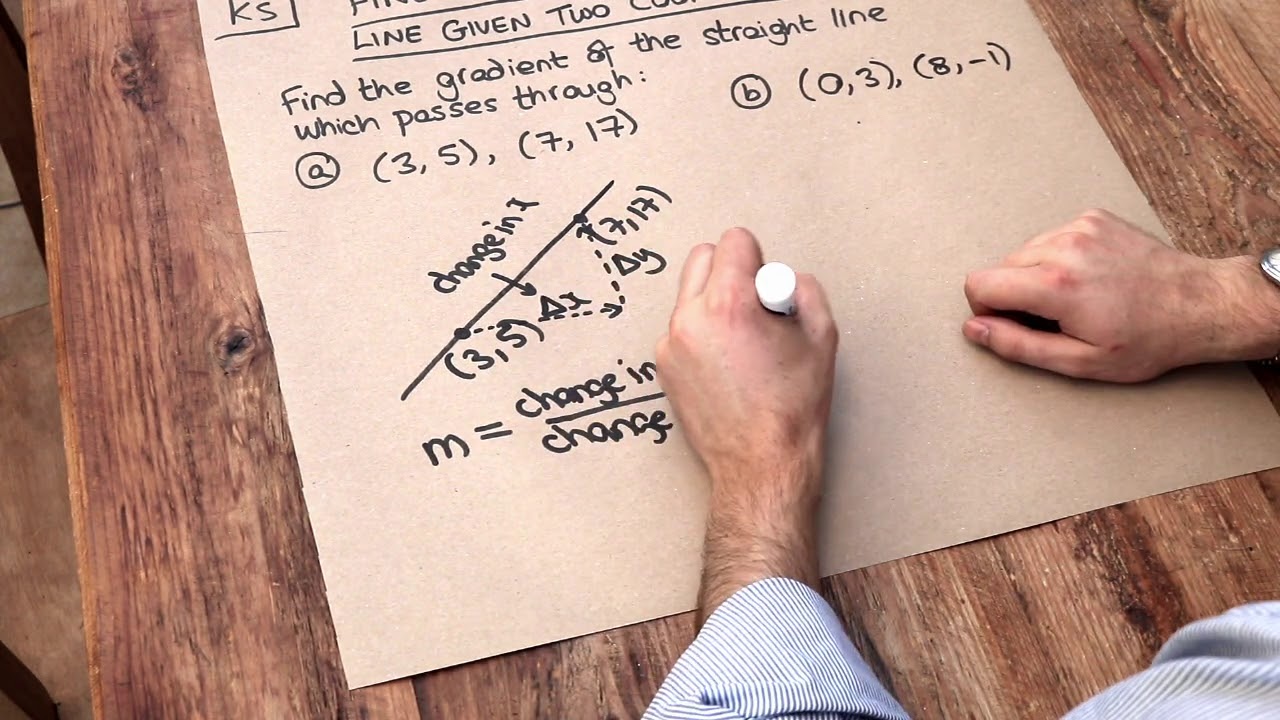 KS
LINE GIVEN TWO
Find the gradient of the straight line
which passes through:
(a) (3, 5), (7, 17)
(b) (0, 3), (8, -1)
change in x
(7, 17)
Δy
Δx
(3, 5)
m = change in
change